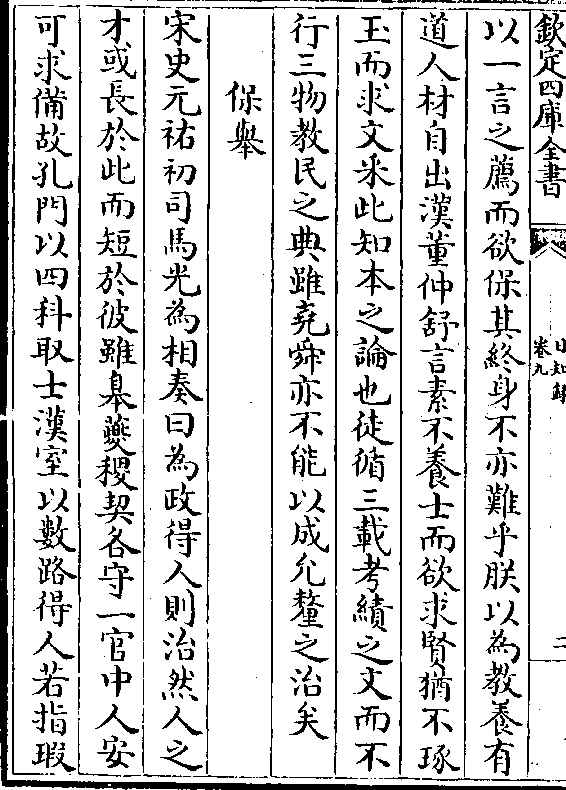 欽定四庫全書
日知錄
卷九
二
以一言之薦而欲保其終身不亦難乎朕以為教養有
道人材自出漢董仲舒言素不養士而欲求賢猶不琢
玉而求文采此知本之論也徒循三載考績之文而不
行三物教民之典雖堯舜亦不能以成允釐之治矣
保舉
宋史元祐初司馬光為相奏曰為政得人則治然人之
才或長於此而短於彼雖臯夔稷契各守一官中人安
可求備故孔門以四科取士漢室以數路得人若指瑕